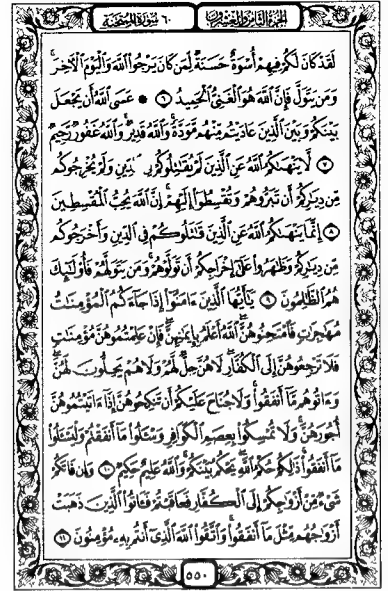 الجزء الثامن والعشرون ٦٠ سورة الممتحنة
لَقَدْ كَانَ لَكُمْ فِيهِمْ أُسْوَةٌ حَسَنَةٌ لِّمَن كَانَ يَرْجُوا۟ ٱللَّهَ وَٱلْيَوْمَ ٱلْـَٔاخِرَ ۚ
وَمَن يَتَوَلَّ فَإِنَّ ٱللَّهَ هُوَ ٱلْغَنِىُّ ٱلْحَمِيدُ ٦ ۞ عَسَى ٱللَّهُ أَن يَجْعَلَ
بَيْنَكُمْ وَبَيْنَ ٱلَّذِينَ عَادَيْتُم مِّنْهُم مَّوَدَّةً ۚ وَٱللَّهُ قَدِيرٌ ۚ وَٱللَّهُ غَفُورٌ رَّحِيمٌ
٧ لَّا يَنْهَىٰكُمُ ٱللَّهُ عَنِ ٱلَّذِينَ لَمْ يُقَٰتِلُوكُمْ ـدِّينِ وَلَمْ يُخْرِجُوكُم
مِّن دِيَٰرِكُمْ أَن تَبَرُّوهُمْ وَتُقْسِطُوٓا۟ إِلَيْهِمْ ۚ إِنَّ ٱللَّهَ يُحِبُّ ٱلْمُقْسِطِينَ
٨ إِنَّمَا يَنْهَىٰكُمُ ٱللَّهُ عَنِ ٱلَّذِينَ قَٰتَلُوكُمْ فِى ٱلدِّينِ وَأَخْرَجُوكُم
مِّن دِيَٰرِكُمْ وَظَٰهَرُوا۟ عَلَىٰٓ إِخْرَاجِكُمْ أَن تَوَلَّوْهُمْ ۚ وَمَن يَتَوَلَّهُمْ فَأُو۟لَٰٓئِكَ
هُمُ ٱلظَّٰلِمُونَ ٩ يَٰٓأَيُّهَا ٱلَّذِينَ ءَامَنُوٓا۟ إِذَا جَآءَكُمُ ٱلْمُؤْمِنَٰتُ
مُهَٰجِرَٰتٍ فَٱمْتَحِنُوهُنَّ ۖ ٱللَّهُ أَعْلَمُ بِإِيمَٰنِهِنَّ ۖ فَإِنْ عَلِمْتُمُوهُنَّ مُؤْمِنَٰتٍ
فَلَا تَرْجِعُوهُنَّ إِلَى ٱلْكُفَّارِ ۖ لَا هُنَّ حِلٌّ لَّهُمْ وَلَا هُمْ يَحِلُّونَ لَهُنَّ ۖ
وَءَاتُوهُم مَّآ أَنفَقُوا۟ ۚ وَلَا جُنَاحَ عَلَيْكُمْ أَن تَنكِحُوهُنَّ إِذَآ ءَاتَيْتُمُوهُنَّ
أُجُورَهُنَّ ۚ وَلَا تُمْسِكُوا۟ بِعِصَمِ ٱلْكَوَافِرِ وَسْـَٔلُوا۟ مَآ أَنفَقْتُمْ وَلْيَسْـَٔلُوا۟
مَآ أَنفَقُوا۟ ۚ ذَٰلِكُمْ حُكْمُ ٱللَّهِ ۖ يَحْكُمُ بَيْنَكُمْ ۚ وَٱللَّهُ عَلِيمٌ حَكِيمٌ ١٠ وَإِن فَاتَكُمْ
شَىْءٌ مِّنْ أَزْوَٰجِكُمْ إِلَى ٱلْكُفَّارِ فَعَاقَبْتُمْ فَـَٔاتُوا۟ ٱلَّذِينَ ذَهَبَتْ
أَزْوَٰجُهُم مِّثْلَ مَآ أَنفَقُوا۟ ۚ وَٱتَّقُوا۟ ٱللَّهَ ٱلَّذِىٓ أَنتُم بِهِۦ مُؤْمِنُونَ ١١
٥٥٠